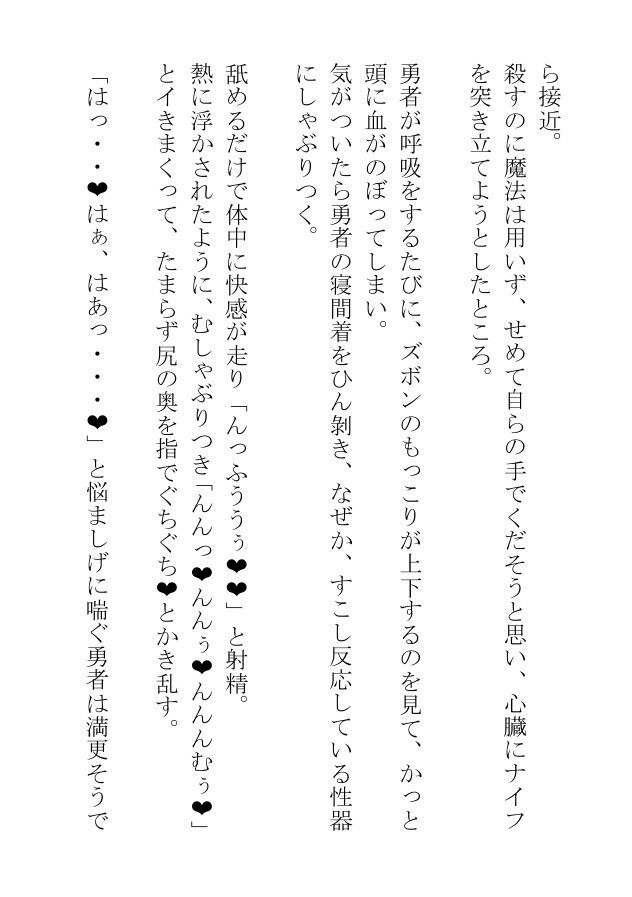 ら接近。
殺すのに魔法は用いず、せめて自らの手でくだそうと思い、心臓にナイフ
を突き立てようとしたところ。
勇者が呼吸をするたびに、ズボンのもっこりが上下するのを見て、かっと
頭に血がのぼってしまい。
気がついたら勇者の寝間着をひん剝き、なぜか、すこし反応している性器
にしゃぶりつく。
舐めるだけで体中に快感が走り「んっふううぅ❤❤」と射精。
熱に浮かされたように、むしゃぶりつき「んんっ❤んんぅ❤んんんむぅ❤」
とイきまくって、たまらず尻の奥を指でぐちぐち❤とかき乱す。
「はっ・・❤はぁ、はあっ・・・❤」と悩ましげに喘ぐ勇者は満更そうで